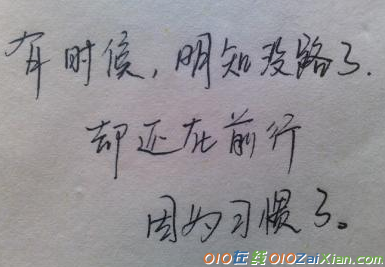 有时候，明知没路了.
却还在前行
因为习惯了。
010在线010ZaiXian.com